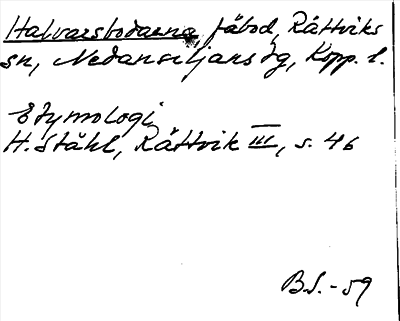 Halvarsbodarna, fäbod, Rättviks
sn, Nedansiljans tg, Kopp. l.
Etymologi
H. Ståhl, Rättvik III, s. 46
B.S. - 59